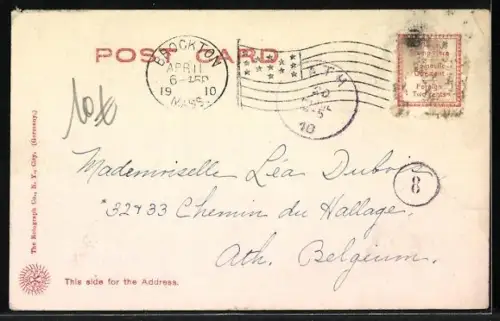 POST CARD
BROCKTON
APR 11
6-
19 10
MASS.
ATH
20
10
Domestic
Foreign
Two Cents
10x
Mademoiselle Léa Dubois
32433 Chemin du Hallage,
Ath. Belgium.
8
The Rotograph Co., N. Y. City. (Germany.)
This side for the Address.